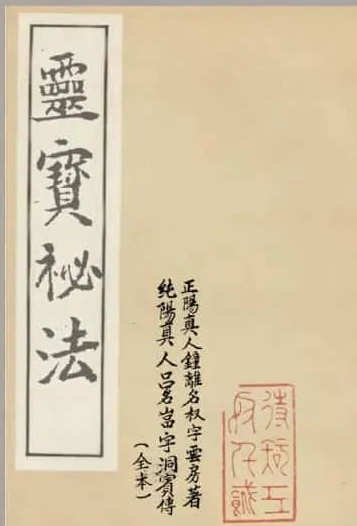 靈寶祕法
正陽真人鐘離名权字雲房著
純陽真人吕名嵒字洞賓傳
(全本)